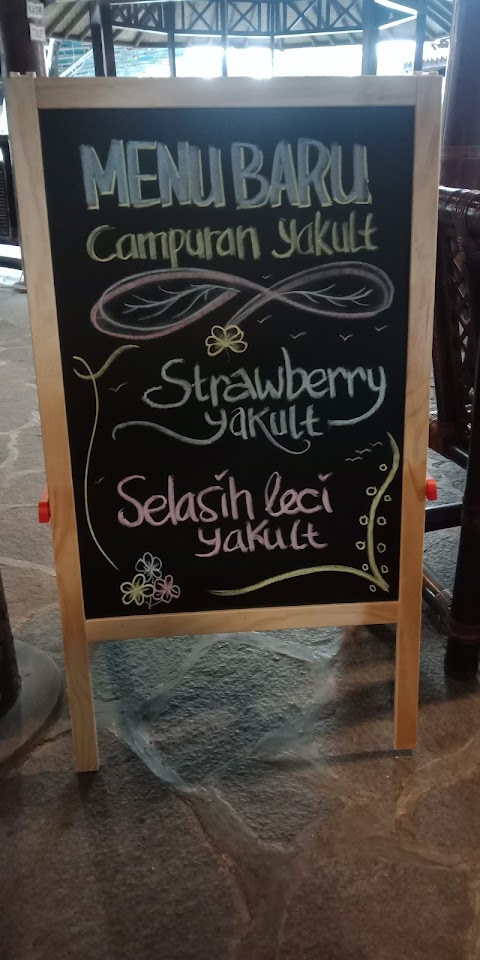 KASIR
MENU BARU
Campuran Yakult
Strawberry
Yakult
Selasih leci
Yakult